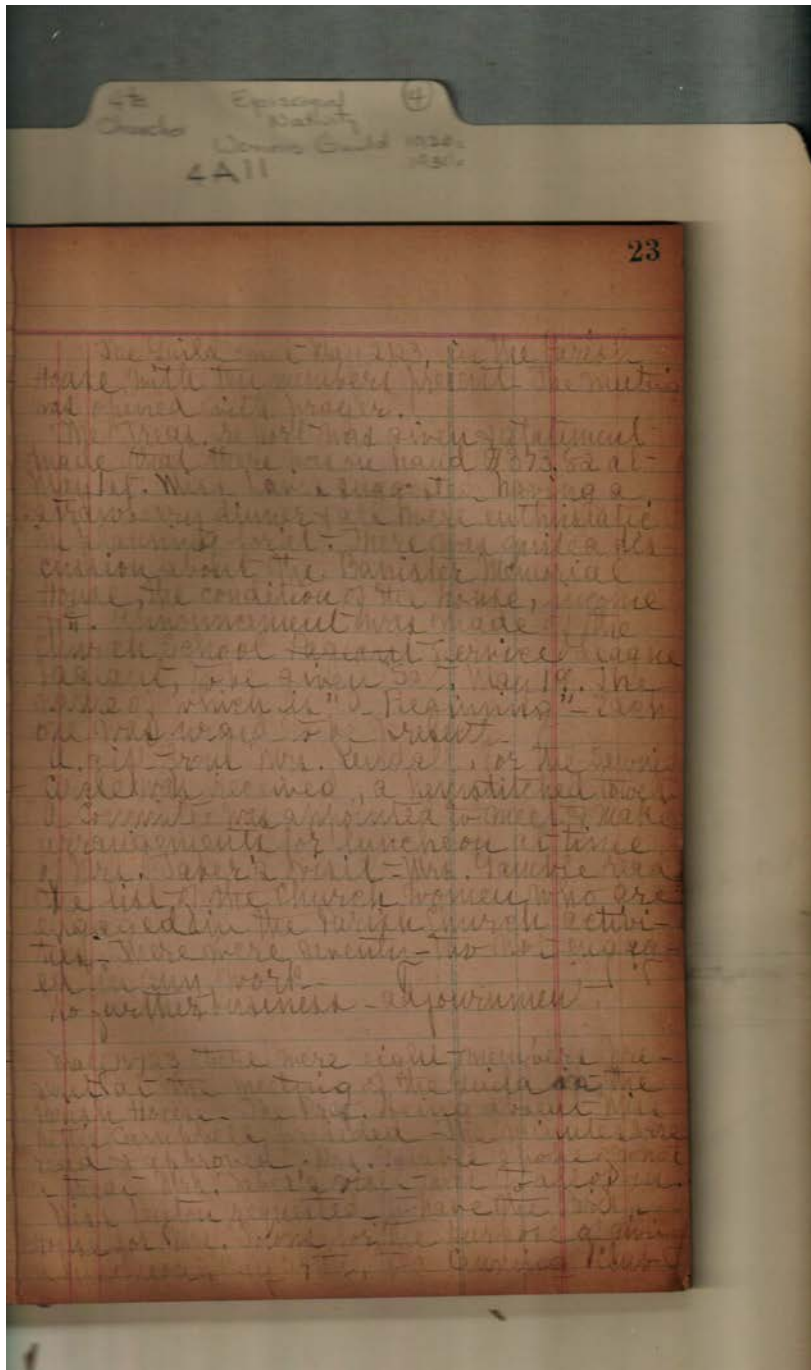 Episcopal ④
Church Nativity
Womens Guild 1920s
4A11 1930s
23
The Guild met May 2nd, in the Parish
House with ten members present. The meeting
was opened with prayer.
The Treas. report was given & statement
made that there was on hand $373.82 at
May 1st. Miss suggested having a
strawberry dinner & all were enthusiastic
in planning for it. There was quite a dis-
cussion about the Banister Memorial
House, the condition of the house, income
etc. Announcement was made of the
Church School Pageant Service League
Pageant, to be given May 19. The
name of which is "A Beginning" - each
one was urged to be present.
A gift from Mrs. for the Sewing
Circle was received, a hemstitched towel.
A Committee was appointed to meet & make
arrangements for luncheon at time
of Mrs. Taber's visit - Mrs. Gamble read
the list of the Church women who are
engaged in the Parish Church activi-
ties. There were seventy-two not engag-
ed in any work.
No further business - adjournment.
there were eight members pre-
sent at the meeting of the Guild in the
Parish House. The Pres. being absent Miss
Campbell presided - The minutes were
read & approved. Mrs. Gamble
Mrs. Taber's
Miss requested to have the
House for for the purpose of
during